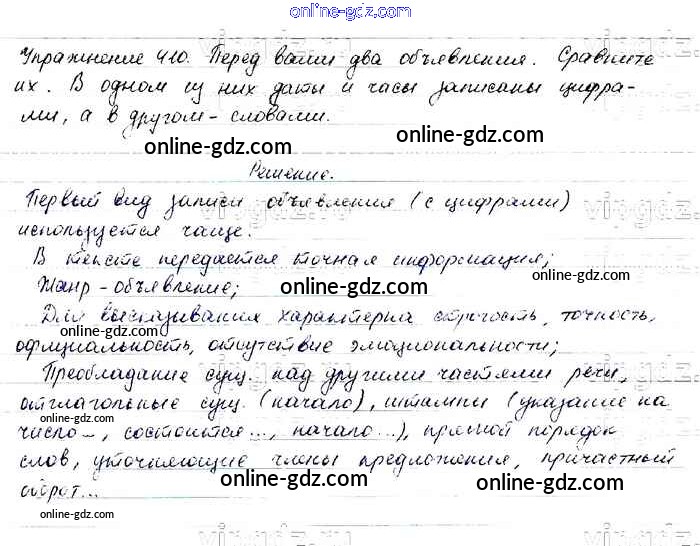 online-gdz.com
Упражнение 410. Перед вами два объявления. Сравните
их. В одном из них даты и часы записаны цифра-
ми, а в другом - словами.
online-gdz.com
online-gdz.com
Решение.
Первый вид записи объявления (с цифрами)
используется чаще.
online-gdz.com
online-gdz.com
В тексте передается точная информация;
Жанр - объявление;
online-gdz.com
Для высказывания характерна строгость, точность,
официальность, отсутствие эмациональности;
online-gdz.com
online-gdz.com
Преобладание сущ. над другими частями речи,
отглагольные сущ. (начало), штампы (указание на
число..., состоится..., начало...), прямой порядок
online-gdz.com
слов, уточняющие члены предложения, причастный
оборот...
online-gdz.com
online-gdz.com